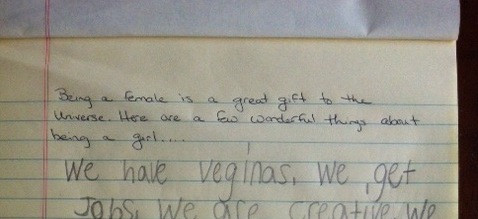 Being a female is a great gift to the
Universe. Here are a few wonderful things about
being a girl....
We have veginas. We get
Jobs. We are creative. We